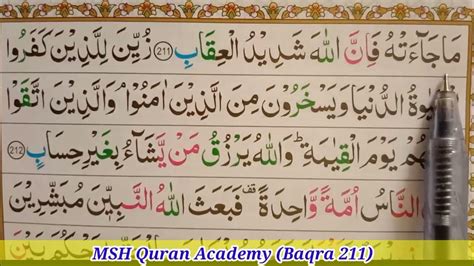 مَا جَآءَتْهُ فَاِنَّ اللّٰهَ شَدِيْدُ الْعِقَابِ 211 زُيِّنَ لِلَّذِيْنَ كَفَرُوا
الدُّنْيَا وَيَسْخَرُوْنَ مِنَ الَّذِيْنَ اٰمَنُوْا وَالَّذِيْنَ اتَّقَوْا
هُمْ يَوْمَ الْقِيٰمَةِ ؕ وَاللّٰهُ يَرْزُقُ مَنْ يَّشَآءُ بِغَيْرِ حِسَابٍ 212
النَّاسُ اُمَّةً وَّاحِدَةً قف فَبَعَثَ اللّٰهُ النَّبِيّٖنَ مُبَشِّرِيْنَ
MSH Quran Academy (Baqra 211)